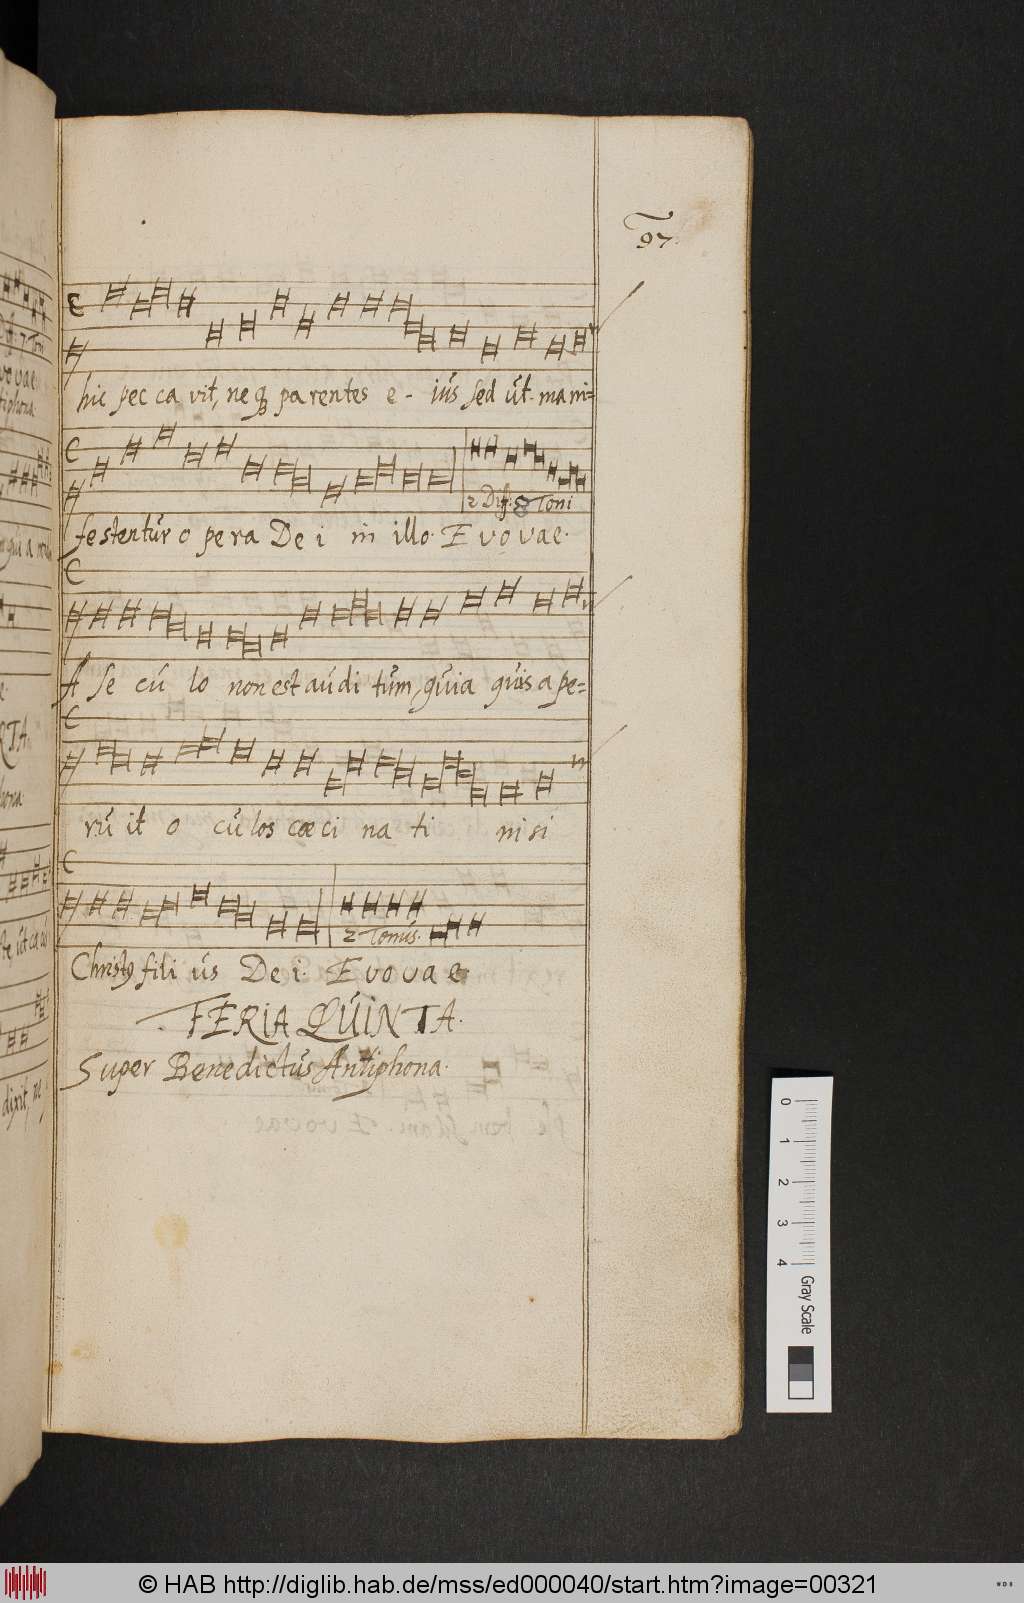 97.
hic pec ca vit, ne qꝫ parentes e - iús sed út ma ni=
2 Diff: 8 Toni
festentúr o pe ra De i in illo. E vo vae.
A se cú lo non est aúdi túm, qúia qúis a pe=
rú it o cú los cœ ci na ti ni si
2 Tonús.
Christꝯ fili ús De i. E vo va e
FERIA QÚINTA.
Super Benedictús Antiphona.
0 1 2 3 4 Gray Scale
© HAB http://diglib.hab.de/mss/ed000040/start.htm?image=00321